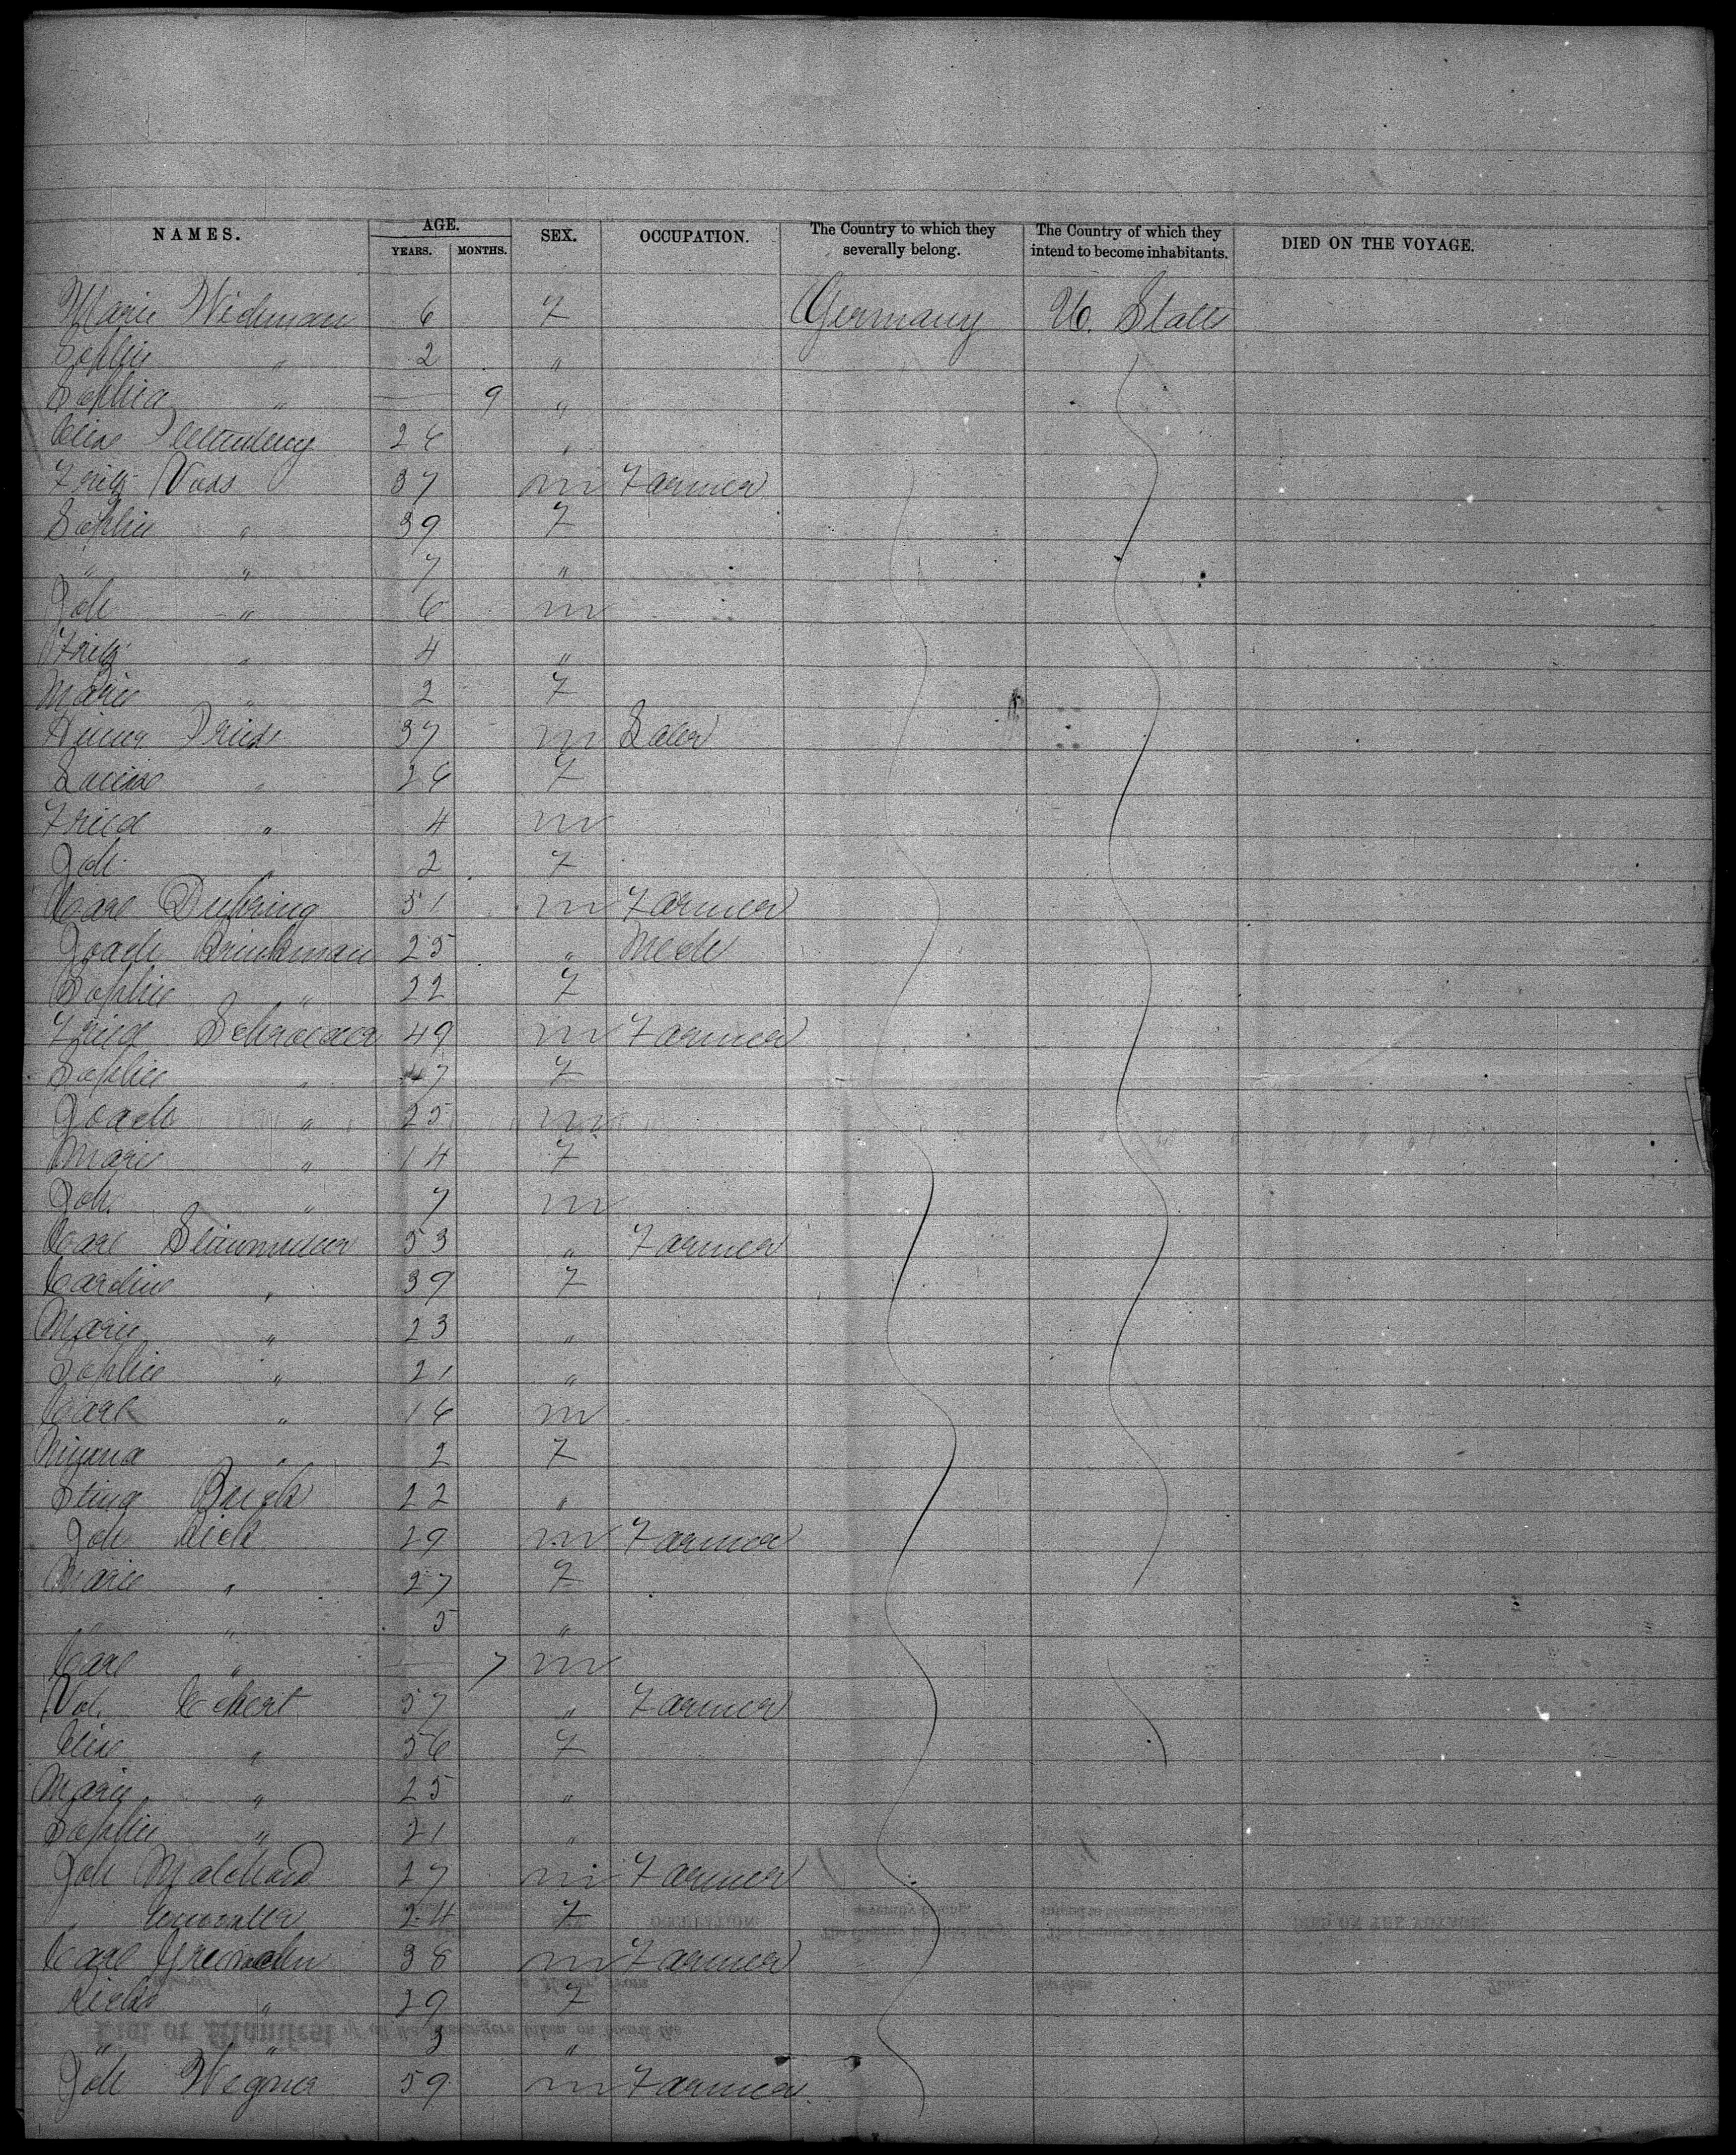 NAMES. AGE. YEARS. MONTHS. SEX. OCCUPATION. The Country to which they severally belong. The Country of which they intend to become inhabitants. DIED ON THE VOYAGE.
Marie Wichman 6 F Germany U. States
Sophie " 2 "
Sophia " — 9 "
Elise 26 "
Fritz Voss 37 m Farmer
Sophie " 39 F
" " 7 "
Joh " 6 m
Fritz " 4 "
Marie " 2 F
37 m
Louise " 26 F
Fried " 4 m
Joh " 2 F
Carl Duhring 51 m Farmer
Joach Brinkman 25 " Mech
Sophie " 22 F
Fried Schroeder 49 m Farmer
Sophie " 47 F
Joach " 25 m
Marie " 14 F
Joh. " 7 m
Carl 53 " Farmer
Caroline " 39 F
Marie " 23 "
Sophie " 21 "
Carl " 16 m
" 2 F
Stina 22 "
Joh Rick 29 m Farmer
Marie " 27 F
" " 5 "
Carl " — 7 m
Eckert 57 " Farmer
Elise " 56 F
Marie " 25 "
Sophie " 21 "
Joh 27 m Farmer
" 24 F
Carl 38 m Farmer
" 29 F
" " 3 "
Joh Wegner 59 m Farmer